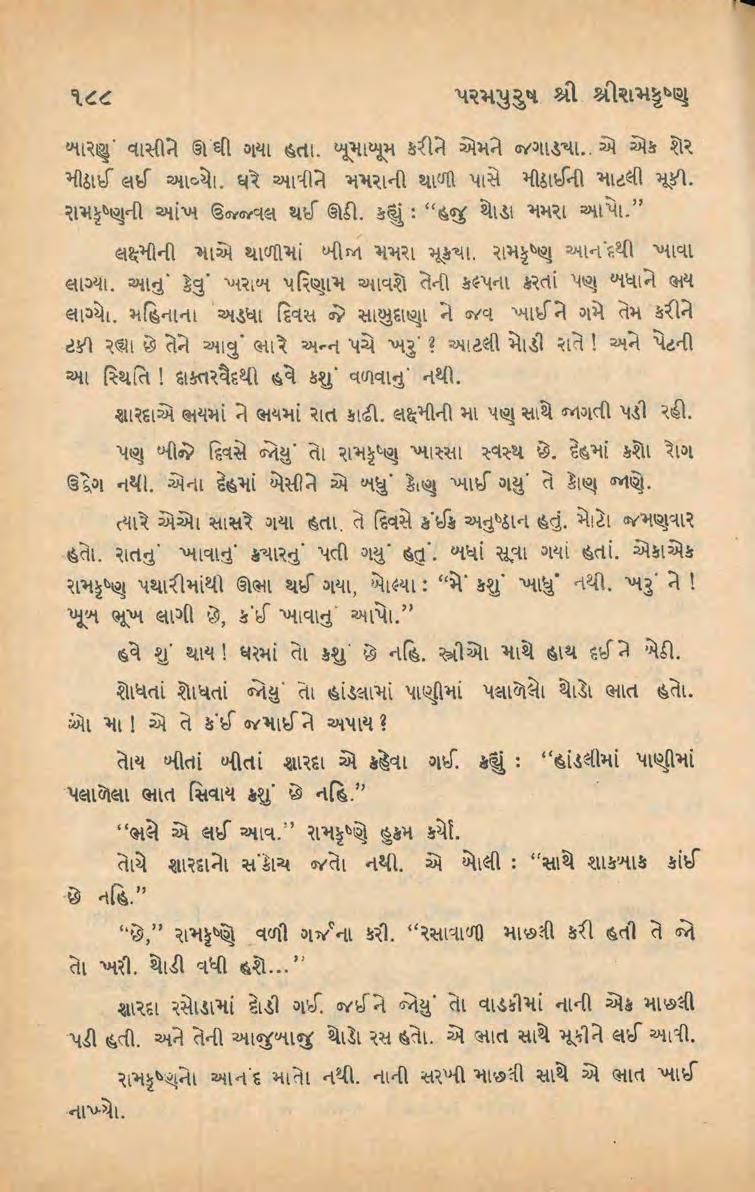 ૧૮૮ પરમપુરુષ શ્રી શ્રીરામકૃષ્ણ
બારણું વાસીને ઊંઘી ગયા હતા. બૂમાબૂમ કરીને એમને જગાડ્યા.. એ એક શેર
મીઠાઈ લઈ આવ્યો. ઘરે આવીને મમરાની થાળી પાસે મીઠાઈની માટલી મૂકી.
રામકૃષ્ણની આંખ ઉજ્જવલ થઈ ઊઠી. કહ્યું : “હજુ થોડા મમરા આપો.”
લક્ષ્મીની માએ થાળીમાં બીજા મમરા મૂક્યા. રામકૃષ્ણ આનંદથી ખાવા
લાગ્યા. આનું કેવું ખરાબ પરિણામ આવશે તેની કલ્પના કરતાં પણ બધાને ભય
લાગ્યો. મહિનાના અડધા દિવસ જે સાબુદાણા ને જવ ખાઈને ગમે તેમ કરીને
ટકી રહ્યા છે તેને આવું ભારે અન્ન પચે ખરું ? આટલી મોડી રાતે ! અને પેટની
આ સ્થિતિ ! દાક્તરવૈદથી હવે કશું વળવાનું નથી.
શારદાએ ભયમાં ને ભયમાં રાત કાઢી. લક્ષ્મીની મા પણ સાથે જાગતી પડી રહી.
પણ બીજે દિવસે જોયું તો રામકૃષ્ણ ખાસ્સા સ્વસ્થ છે. દેહમાં કશો રોગ
ઉદ્વેગ નથી. એના દેહમાં બેસીને એ બધું કોણ ખાઈ ગયું તે કોણ જાણે.
ત્યારે એઓ સાસરે ગયા હતા. તે દિવસે કંઈક અનુષ્ઠાન હતું. મોટો જમણવાર
હતો. રાતનું ખાવાનું ક્યારનું પતી ગયું હતું. બધાં સૂવા ગયાં હતાં. એકાએક
રામકૃષ્ણ પથારીમાંથી ઊભા થઈ ગયા, બોલ્યા : “મેં કશું ખાધું નથી. ખરું ને !
ખૂબ ભૂખ લાગી છે, કંઈ ખાવાનું આપો.”
હવે શું થાય ! ઘરમાં તો કશું છે નહિ. સ્ત્રીઓ માથે હાથ દઈને બેઠી.
શોધતાં શોધતાં જોયું તો હાંડલામાં પાણીમાં પલાળેલો થોડો ભાત હતો.
ઓ મા ! એ તે કંઈ જમાઈને અપાય ?
તોય બીતાં બીતાં શારદા એ કહેવા ગઈ. કહ્યું : “હાંડલીમાં પાણીમાં
પલાળેલા ભાત સિવાય કશું છે નહિ.”
“ભલે એ લઈ આવ.” રામકૃષ્ણે હુકમ કર્યો.
તોયે શારદાનો સંકોચ જતો નથી. એ બોલી : “સાથે શાકબાક કાંઈ
છે નહિ.”
“છે,” રામકૃષ્ણે વળી ગર્જના કરી. “રસાવાળી માછલી કરી હતી તે જો
તો ખરી. થોડી વધી હશે...”
શારદા રસોડામાં દોડી ગઈ. જઈને જોયું તો વાડકીમાં નાની એક માછલી
પડી હતી. અને તેની આજુબાજુ થોડો રસ હતો. એ ભાત સાથે મૂકીને લઈ આવી.
રામકૃષ્ણનો આનંદ માતો નથી. નાની સરખી માછલી સાથે એ ભાત ખાઈ
નાખ્યો.